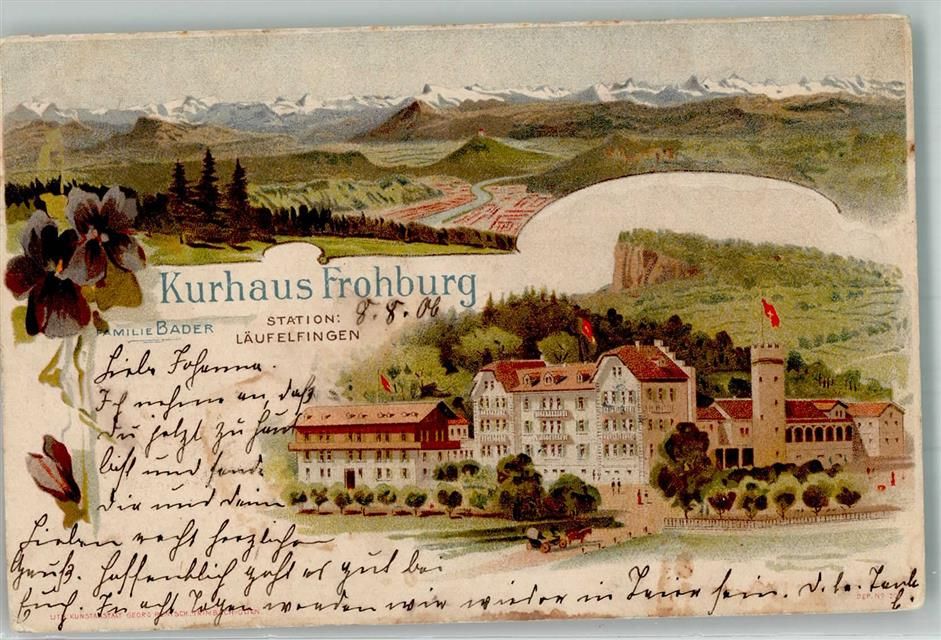 Kurhaus Frohburg
8. 8. 06
FAMILIE BADER
STATION:
LÄUFELFINGEN
Liebe Johanna.
Ich nehme an, daß
Du jetzt zu Haus
bist und sende
Dir und Deinen
Lieben recht herzlichen
Gruß. Hoffentlich geht es gut bei
Euch. In acht Tagen werden wir wieder in Trier sein. D. l. Tante
LITH. KUNSTANSTALT GEORG
DEP. No